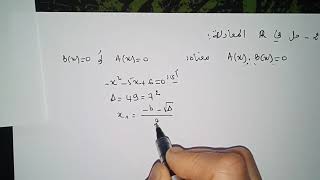 2 - حل في R المعادلة:
A(x).B(x)=0 معناه A(x)=0 أو B(x)=0
-x²-5x+6=0
Δ=49=7²
x₁ = (-b-√Δ)/